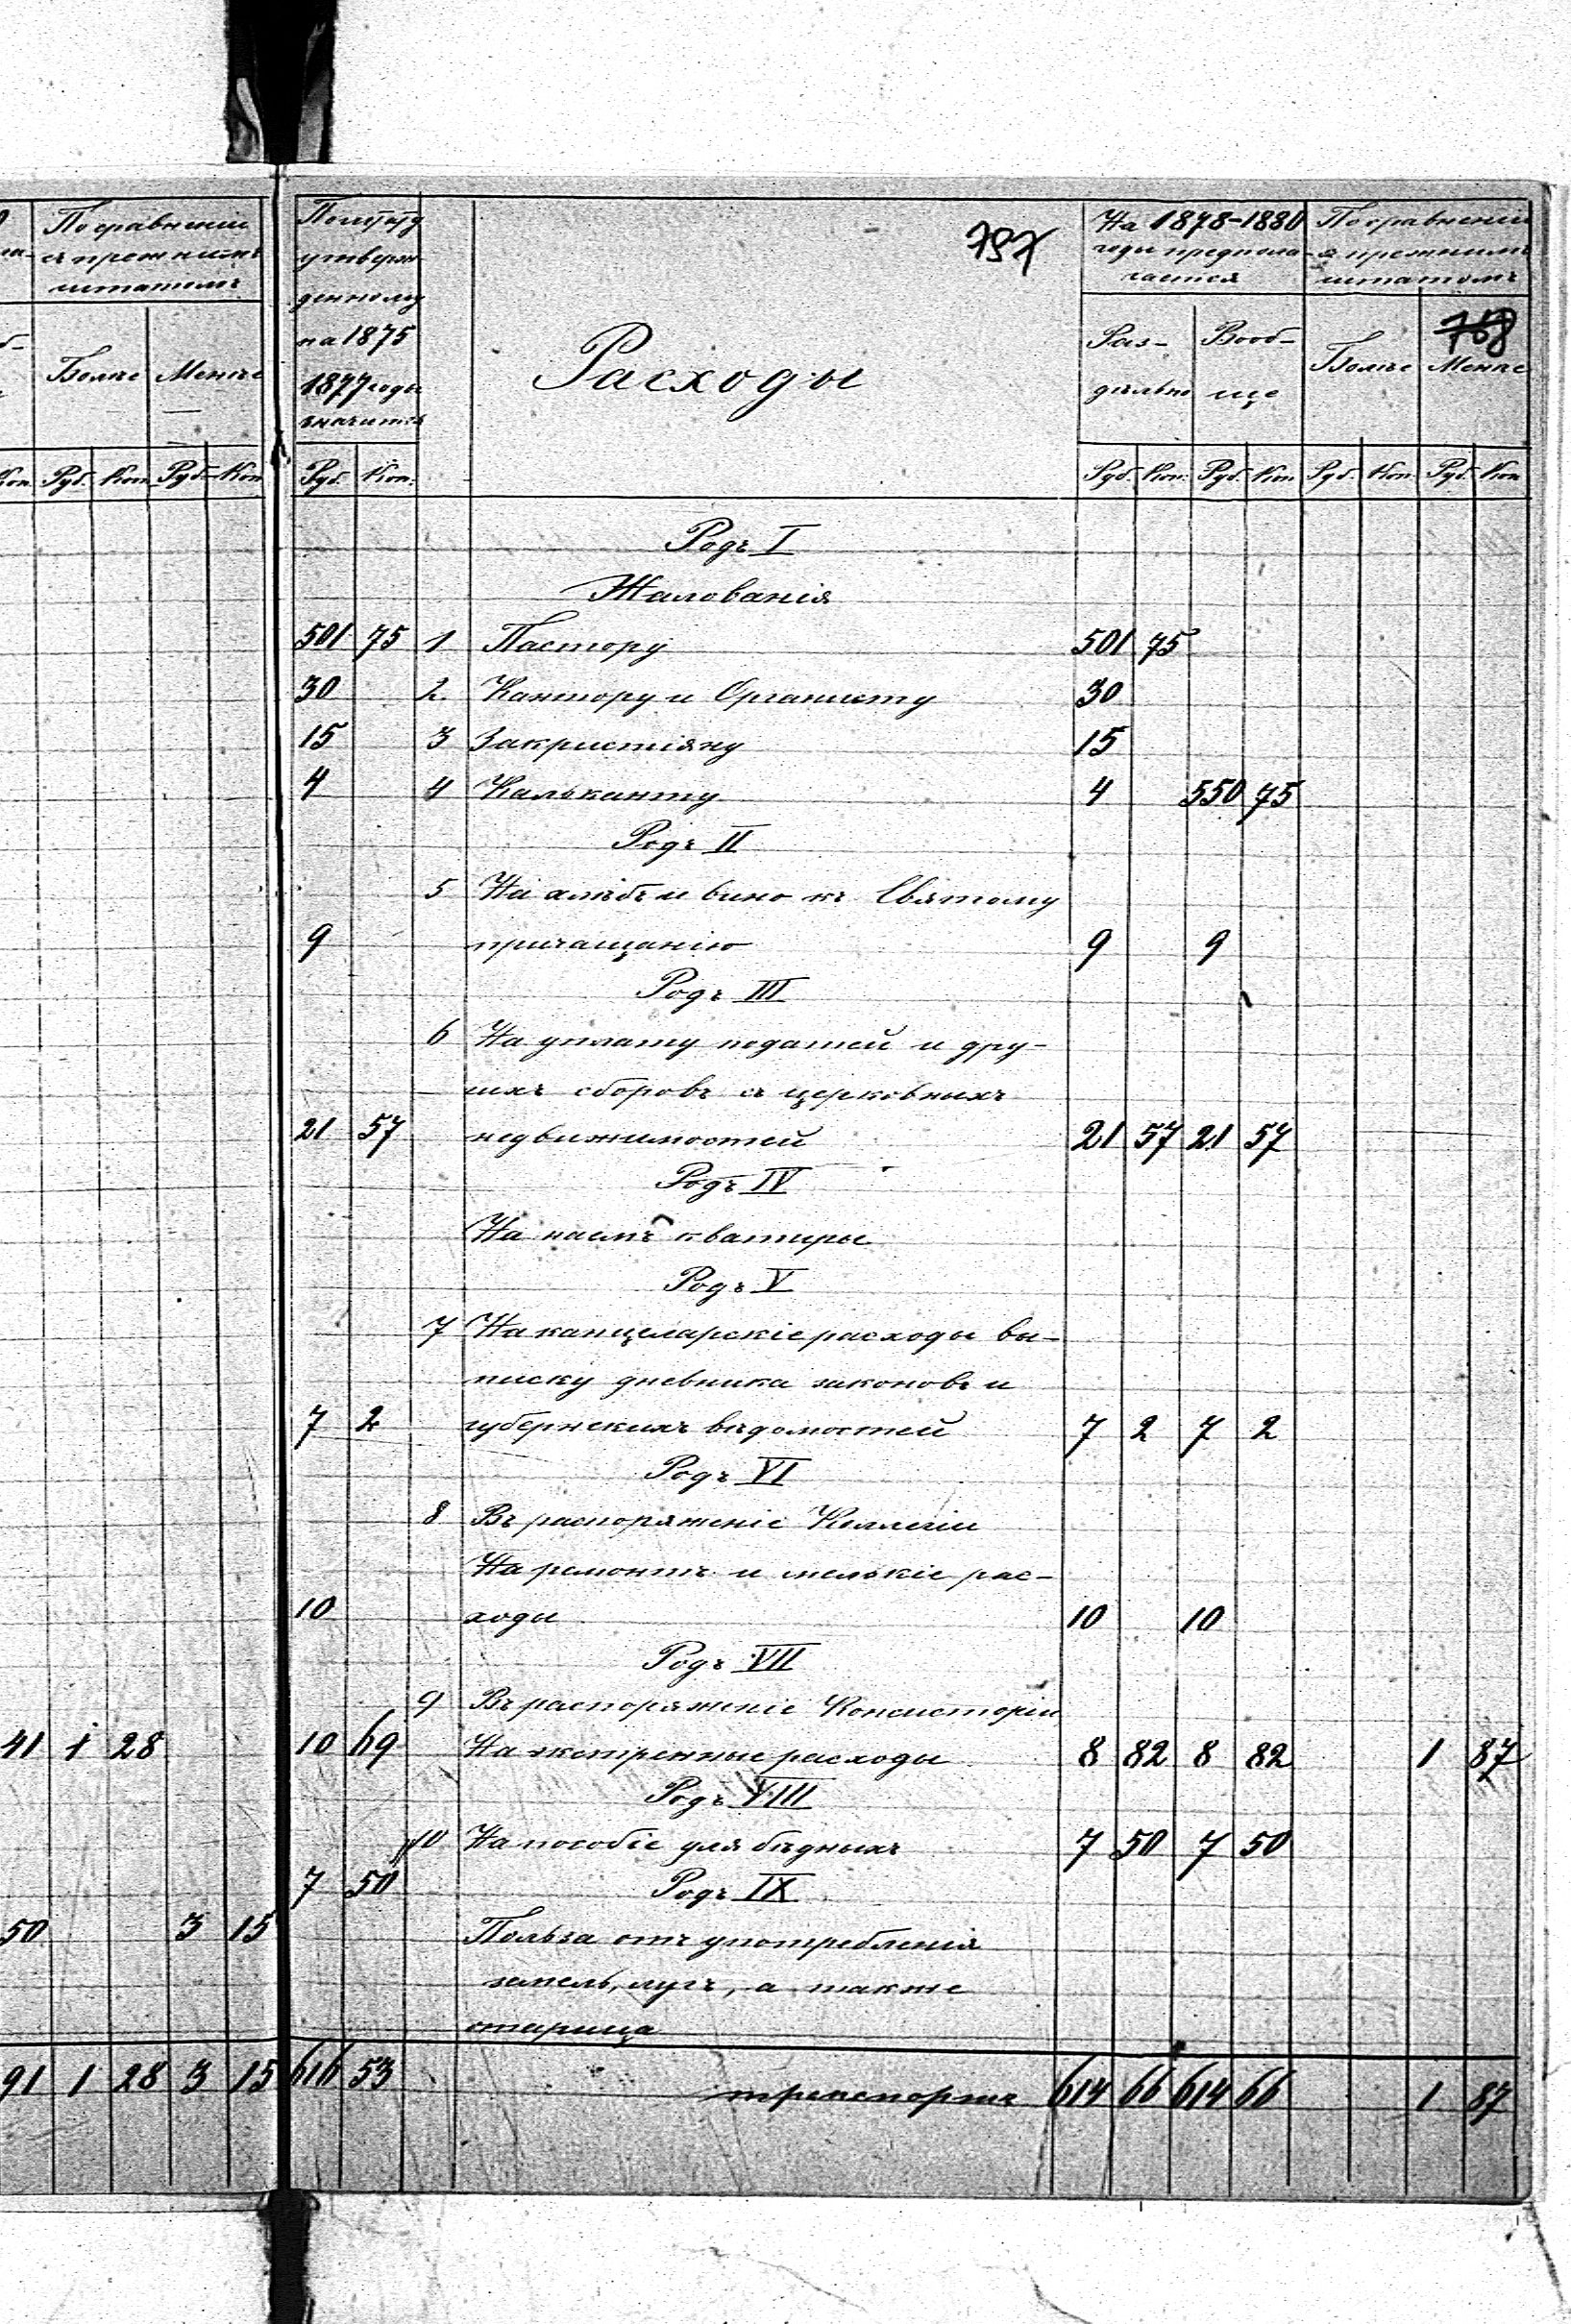 По сравненiю
съ прежнимъ
штатомъ
Болѣе Менѣе
Коп. Руб. Коп. Руб. Коп
41 1 28
50 3 15
91 1 28 3 15
утверж-
денному
на 1875
1877 годы
значится
Руб. Коп.
797
Расходы
На 1878-1880
годы предпола-
гается
Раз- Вооб-
дѣльно ще
По сравненiю
съ прежнимъ
штатомъ
768
Болѣе Менѣе
Руб. Коп. Руб. Коп Руб. Коп. Руб. Коп
Родъ I
Жалованiя
501 75 1 Пастору 501 75
30 2. Кантору и Органисту 30
15 3 Закристiяну 15
4 4 Кальканту 4 550 75
Родъ II
5 На хлѣбъ и вино къ Святому
9 причащанiю 9 9
Родъ III
6 На уплату податей и дру-
гихъ сборовъ съ церковныхъ
21 57 недвижимостей 21 57 21 57
Родъ IV
На наемъ квартиры
Родъ V
7 На канцеларскiе расходы вы-
писку дневника законовъ и
7 2 губернскихъ вѣдомостей 7 2 7 2
Родъ VI
8 Въ распоряженiе Коллегiи
На ремонтъ и мелькiе рас-
10 ходы 10 10
Родъ VII
9 Въ распоряженiе Консисторiи
10 69 На экстренные расходы 8 82 8 82 1 87
Родъ VIII
10 На пособiе для бѣдныхъ 7 50 7 50
7 50 Родъ IX
Польза отъ употребленiя
земель, лугъ, а также
616 53 транспортъ 614 66 614 66 1 87